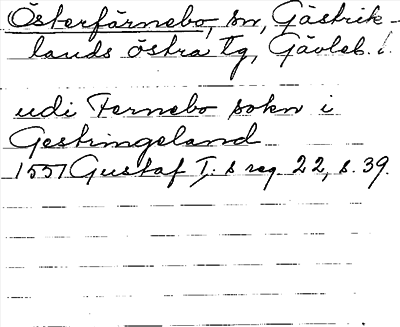 Österfärnebo, sn, Gästrik-
lands östra tg, Gävleb. l.
udi Fernebo sokn i
Gestringeland
1551 Gustaf I:s reg. 22, s. 39.